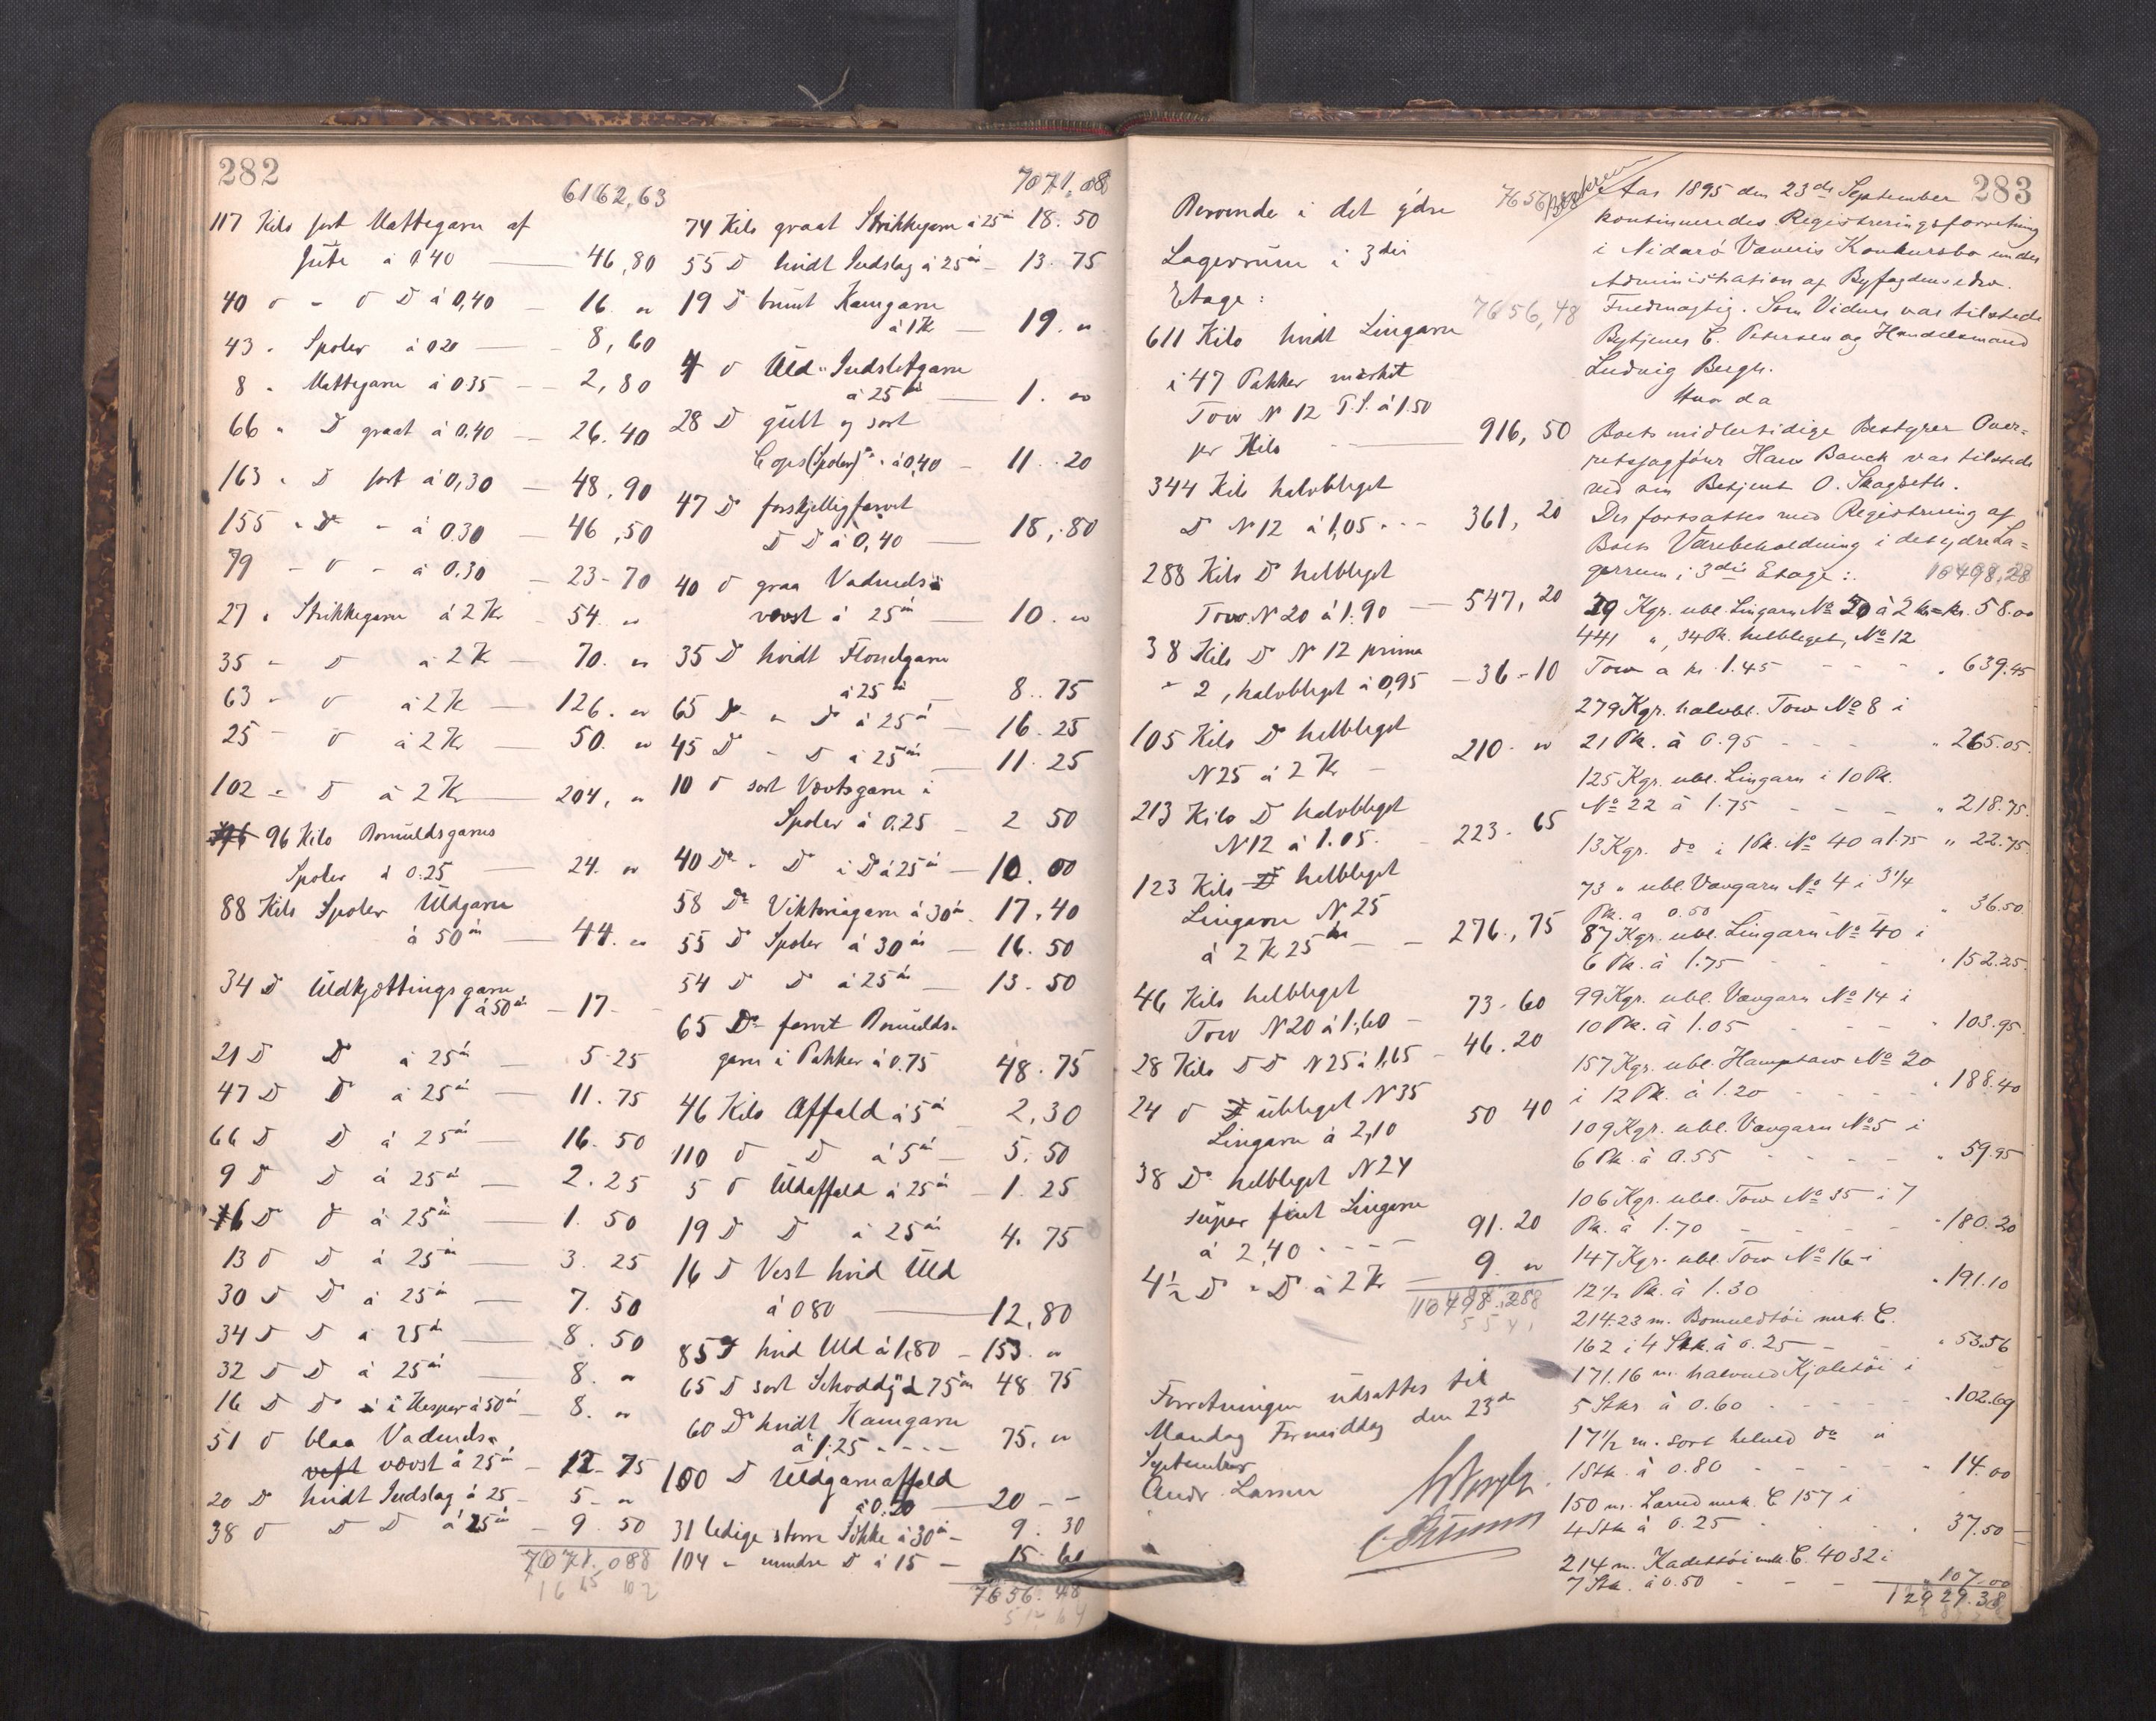 282
6162,63
117 Kilo sort Mattegarn af
Jüte à 0 40 — 46,80
40 D - D D à 0,40 — 16. "
43 " Spoler à 0 20 — 8,60
8 " Mattegarn à 0 35 — 2,80
66 " D graat à 0,40 — 26.40
163 " D sort à 0,30 — 48,90
155 " D - à 0.30 — 46,50
79 - D - à 0.30 — 23-70
27 " Strikkegarn à 2 Kr — 54. "
35 - D à 2 K — 70. "
63 - D à 2 K — 126. "
25 - D à 2 Kr — 50. "
102 - D à 2 Kr — 204, "
96 Kilo Bomüldsgarns
Spoler à 0.25 — 24. "
88 Kilo Spoler Üldgarn
à 50 ør — 44. "
34 D Üldkjættingsgarn
à 50 ør — 17 -
21 D D à 25 ør — 5.25
47 D D à 25 ør — 11.75
66 D D à 25 ør — 16.50
9 D D à 25 ør — 2.25
6 D D à 25 ør — 1.50
13 D D à 25 ør — 3.25
30 D D à 25 ør — 7.50
34 D D à 25 ør — 8.50
32 D D à 25 ør — 8. "
16 D D i Hesper à 50 ør — 8. "
51 D blaa Vadmels-
veft vævst à 25 ør — 12-75
20 D hvidt Indslag à 25 — 5- "
38 D D D à 25 ør — 9.50
7071.08
7071,08
74 Kilo graat Strikkegarn à 25 ør 18.50
55 D hvidt Indslag à 25 ør — 13.75
19 D brünt Kamgarn
à 1 K — 19. "
4 D Üld-Indsletgarn
à 25 ør — 1. "
28 D gült og sort
Cops (Spoler) à 0,40 — 11.20
47 D forskjelligfarvet
D D à 0,40 — 18,80
40 D graa Vadmels-
vævst à 25 ør — 10. "
35 D hvidt Flonelgarn
à 25 ør — 8.75
65 D - D à 25 ør — 16.25
45 D - D à 25 ør — 11.25
10 D sort Vævtsgarn i
Spoler à 0.25 — 2 50
40 D - D i D à 25 ør — 10.00
58 D Viktoriagarn à 30 ør 17.40
55 D Spoler à 30 ør — 16.50
54 D D à 25 ør — 13.50
65 D farvet Bomülds-
garn i Pakker à 0.75 48.75
46 Kilo Affald à 5 ør 2,30
110 D D à 5 ør — 5.50
5 D Üldaffald à 25 ør — 1.25
19 D D à 25 ør 4.75
16 D Vest hvid Üld
à 0 80 — 12,80
85 D hvid Uld à 1,80 — 153. "
65 D sort Schoddy à 75 ør 48 75
60 D hvidt Kamgarn
à 1.25 - - - 75. "
100 D Üldgarnaffald
à 0.20 — 20 - -
31 ledige større Sække à 30 ør — 9.30
104 - mindre D à 15 — 15.60
7656.48
7656,48
Beroende i det ydre
Lagerrüm i 3die
Etage: 7656,48
611 Kilo hvidt Lingarn
i 47 Pakker mærket
Tow N 12 T.S. à 1.50
pr Kilo — 916,50
344 Kilo halvbleget
D N 12 à 1,05 - - - 361,20
288 Kilo D helbleget
Tow. N 20 à 1.90 — 547,20
38 Kilo D N 12 prima
" 2, halvbleget à 0,95 — 36-10
105 Kilo D helbleget
N 25 à 2 Kr — 210- "
213 Kilo D halvbleget
N 12 à 1.05. — 223.65
123 Kilo helbleget
Lingarn N 25
à 2 K 25 ør — 276,75
46 Kilo helbleget
Tow N 20 à 1,60 — 73-60
28 Kilo D D N 25 à 1,65 — 46.20
24 D übleget N 35
Lingarn à 2,10 50 40
38 D helbleget N 24
süper fint Lingarn
à 2,40 - - - 91.20
4½ D - D à 2 Kr — 9. "
10498.28
Forretningen üdsattes til
Mandag Formiddag den 23de
September
Andr. Larsen
283
Aar 1895 den 23de September
kontinueredes Registreringsforretning
i Nidarø Væveris Konkursbo under
Administration af Byfogdens edsv.
Fuldmægtig. Som Vidner var tilstede
Bytjener C. Petersen og Handelsmand
Ludvig Bergh.
Hvor da
Boets midlertidige Bestyrer Over-
retssagfører Hans Bauck var tilstede
ved sin Betjent O. Skagseth.
Der fortsattes med Registrering af
Boets Varebeholdning i det ydre La-
gerrum i 3die Etage: 10498,28
29 Kgr. ubl. Lingarn No 20 à 2 kr = kr. 58.00
441 " , 34 Pk. helbleget, No 12
Tow a kr. 1.45 - - - " 639.45
279 Kgr. halvbl. Tow No 8 i
21 Pk. à 0.95 - - - " 265.05
125 Kgr. ubl. Lingarn i 10 Pk.
No 22 à 1.75 - - - " 218.75
13 Kgr. do i 1 Pk. No 40 a 1.75 " 22.75
73 " ubl. Vævgarn No 4 i 3 1/4
Pk. a 0.50 " 36.50
87 Kgr. ubl. Lingarn No 40 i
6 Pk. à 1.75 - - - " 152.25
99 Kgr. ubl. Vævgarn No 14 i
10 Pk. à 1.05 - - - " 103.95
157 Kgr. ubl. Hamptow No 20
i 12 Pk. à 1.20 - - - " 188.40
109 Kgr. ubl. Vævgarn No 5 i
6 Pk. à 0.55 - - - " 59.95
106 Kgr. ubl. Tow No 35 i 7
Pk. à 1.70 - - - " 180.20
147 Kgr. ubl. Tow No 16 i
12½ Pk. à 1.30 " 191.10
214.23 m. Bomuldstøi mrk. C.
162 i 4 Stk. à 0.25 - - " 53.56
171.16 m. halvuld Kjoletøi i
5 Stkr à 0.60 - - - " 102.69
17½ m. sort heluld do i
1 Stk. à 0.80 - - - " 14.00
150 m. Lærred mrk. C 157 i
4 Stk à 0.25 " 37.50
214 m. Kadettøi mrk. C. 4032 i
7 Stk. à 0.50 - - - " 107.00
12929.38